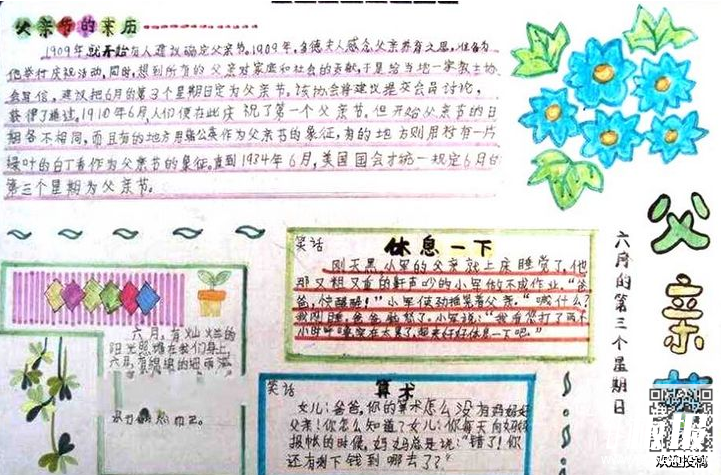 父亲节的来历
1909年就开始有人建议确定父亲节。1909年,多德夫人感念父亲养育之恩,准备为
他举行庆祝活动,同时,想到所有的父亲对家庭和社会的贡献,于是给当地一家教士协
会写信,建议把6月的第3个星期日定为父亲节。该协会将建议提交会员讨论,
获得了通过。1910年6月,人们便在此庆祝了第一个父亲节。但开始父亲节的日
期各不相同,而且有的地方用蒲公英作为父亲节的象征,有的地方则用衬有一片
绿叶的白丁香作为父亲节的象征。直到1934年6月,美国国会才统一规定6月的
第三个星期为父亲节。
父亲节
六月的第三个星期日
笑话 休息一下
刚天黑,小军的父亲就上床睡觉了,他
那又粗又重的鼾声吵的小军做不成作业。“爸
爸,快醒醒!”小军使劲摇晃着父亲。“喊什么?
小时呼噜实在太累了,起来好好休息一下吧。”
六月,有灿烂的
阳光照耀在我们身上,
六月,有绵绵的细雨滋
笑话 算术
女儿:爸爸,你的算术怎么没有妈妈好
父亲!你怎么知道?女儿:你每天向妈妈
报帐的时候,妈妈总是说:“错了!你
还有剩下钱到哪去了?”